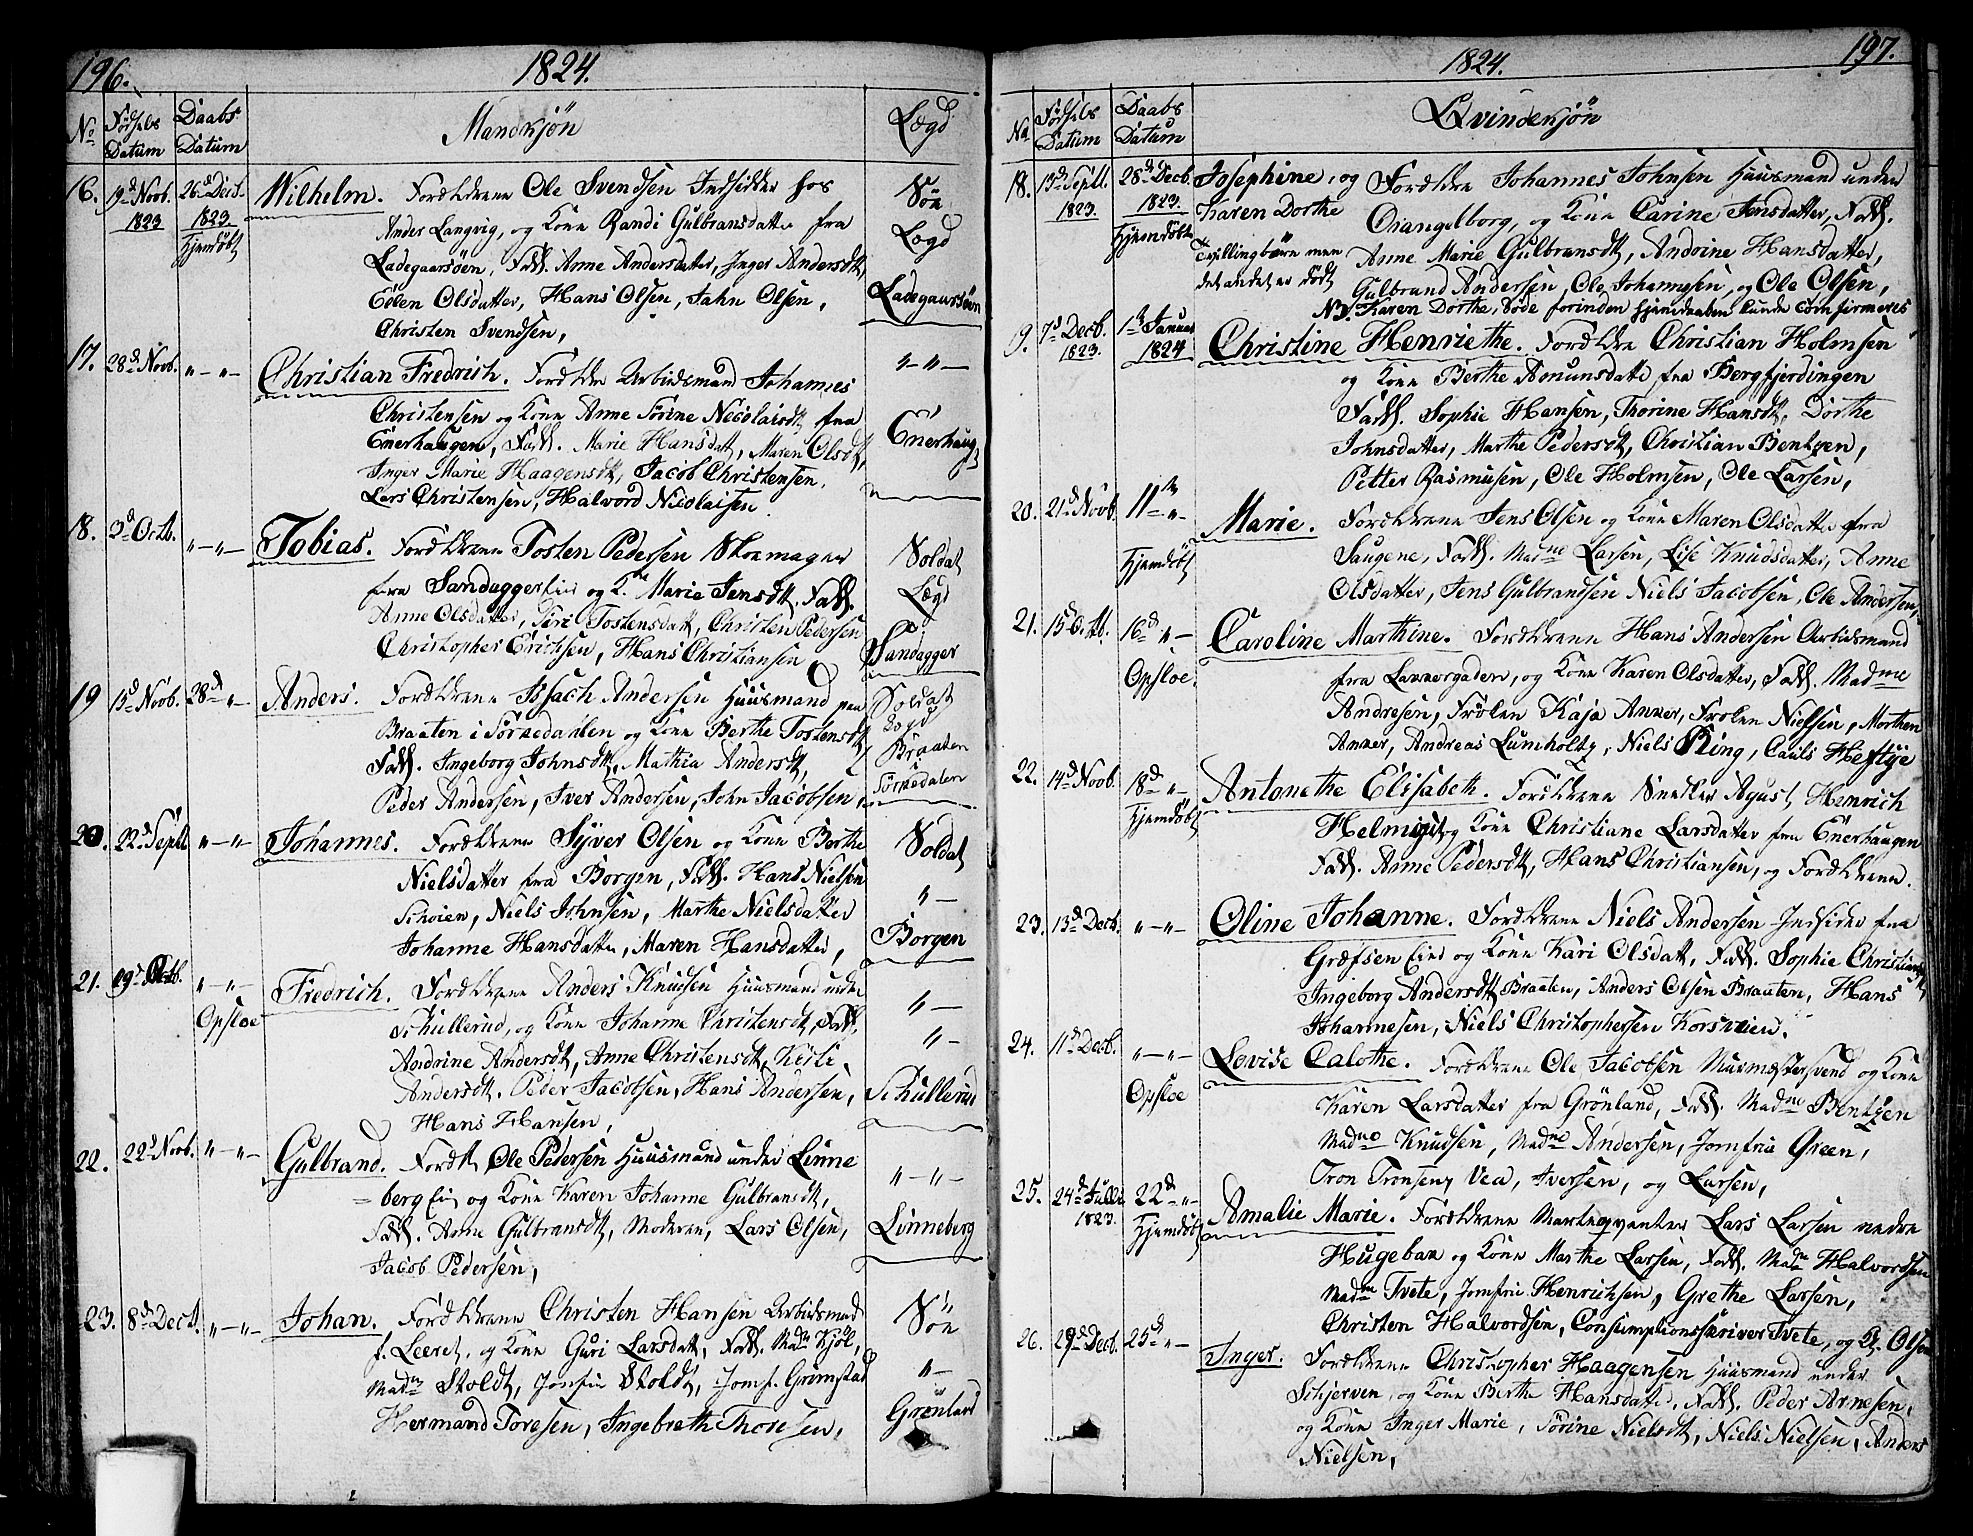 196.
1824.
No Fødsels Datum Daabs Datum Mandkjön Lægd
16. 19d Novb. 1823 26d Decb. 1823 Hjemdöbt
Wilhelm. Forældrene Ole Svendsen Indsidder hos
Ander Langvig, og Kone Randi Gulbransdatter fra
Ladegaardsöen, Fadd. Anne Andersdatter, Inger Andersdt,
Eelen Olsdatter, Hans Olsen, Jahn Olsen,
Christen Svendsen,
Söe Lægd Ladegaardsöen
17. 28d Novb. " — " —
Christian Fredrich. Forældre Arbeidsmand Johannes
Christensen og Kone Anne Sörine Nicolaisdt fra
Enerhaugen, Fadd. Marie Hansdatt, Maren Olsdt,
Inger Marie Haagensdt, Jacob Christensen,
Lars Christensen, Halvord Nicolaisen
" — " — Enerhaug
18. 3d Octb. " — " —
Tobias. Forældrene Tosten Pedersen Skoemager
fra Sandagger Eie og K. Marie Jensdt, Fadd.
Anne Olsdatter, Siri Tostensdatt, Christen Pedersen
Christopher Erichsen, Hans Christiansen
Soldat Lægd Sandagger
19 15d Novb. 28d " —
Anders. Forældrene Issach Andersen Huusmand paa
Braaten i Sörkedahlen og Kone Berthe Tostensdt
Fadd. Ingeborg Johnsdt, Mathia Andersdt,
Peder Andersen, Iver Andersen, John Jacobsen,
Soldat Lægd Braaten Sörkedalen
20. 22d Septb " — "
Johannes. Forældrene Syver Olsen og Kone Berthe
Nielsdatter fra Borgen, Fadd. Hans Nielsen
Schöien, Niels Johnsen, Marthe Nielsdatter
Johanne Hansdatter, Maren Hansdatter,
Soldat " — Borgen
21. 19d Octb. " — " — Opsloe
Fredrich. Forældrene Anders Knudsen Huusmand under
Schullerud, og Kone Johanne Christensdt, Fadd.
Andrine Andersdt, Anne Christensdt, Kisti
Andersdt, Peder Jacobsen, Hans Andersen,
Hans Hansen,
" — " — Schullerud
22. 22d Novb. " — " —
Gulbrand. Forældre Ole Pedersen Huusmand under Linne
= berg Eie og Kone Karen Johanne Gulbransdt,
Fadd. Anne Gulbransdt, Moderen, Lars Olsen,
Jacob Pedersen,
" — " — Linneberg
23. 8d Decb. " — " —
Johan. Forældrene Christen Hansen Arbidsmad
f. Leeret, og Kone Guri Larsdatt, Fadd. Madm Kjöl,
Madm Stoldt, Jomfru Stoldt, Jomf. Grimstad
Hermand Toresen, Ingebreth Thoresen,
Söe " — Grönland
1824.
197.
No Fødsels Datum Daabs Datum Qvindekjön
18. 13d Septb. 1823. 28d Decb. 1823. Hjemdöbte
Josephine, og Karen Dorthe
Tvillingbörn men det andet er dödt
Forældre Johannes Johnsen Huusmand under
Orangelborg, og Kone Carine Jensdatter, Fadd.
Anne Marie Gulbransdt, Andrine Hansdatter,
Gulbrand Andersen, Ole Johannesen, og Ole Olsen,
NB. Karen Dorthe, döde forinden Hjemdaaben kunde Confirmeres
19. 7d Decb. 1823. 1te Januar 1824
Christine Henriethe. Forældre Christian Holmsen
og Kone Berthe Amunsdatt fra Bergfjerdingen
Fadd. Sophie Hansen, Thorine Hansdt, Dorthe
Johnsdatter, Marthe Pedersdt, Christian Bentzen,
Petter Rasmusen, Ole Holmsen, Ole Larsen,
20. 21d Novb. 11te " — Hjemdöbt
Marie. Forældrene Jens Olsen og Kone Maren Olsdatter fra
Saugene, Fadd. Madme Larsen, Lise Knudsdatter, Anne
Olsdatter, Jens Gulbrandsen Niels Jacobsen, Ole Andersen,
21. 15d Octb. 16d " — Opsloe.
Caroline Marthine. Forældrene Hans Andersen Arbidsmand
fra Lakkergaden, og Kone Karen Olsdatter, Fadd. Madme
Andresen, Frölen Kaja Anker, Frölen Nielsen, Morthen
Anker, Andreas Lumholtz, Niels Ring, Cauls Heftye
22. 14d Novb. 18d " — Hjemdöbt
Antonethe Elisabeth. Forældrene Snedker Agust Henrich
Helmig og Kone Christiane Larsdatter fra Enerhaugen
Fadd. Anne Pedersdt, Hans Christiansen, og Forældrene.
23. 13d Decb. " — " —
Oline Johanne. Forældrene Niels Andersen Indsider fra
Græfsen Eie og Kone Kari Olsdatt, Fadd. Sophie Christiansdt,
Ingeborg Andersdt Braaten, Anders Olsen Braaten, Hans
Johannesen, Niels Christophersen Korsveien.
24. 11d Decb. " — " — Opsloe
Lovise Calothe. Forældrene Ole Jacobsen Murmestersvend og Kone
Karen Larsdatter fra Grönland, Fadd. Madme Bentzen
Madme Knudsen, Madme Andersen, Jomfrue Green,
Tron Tronsen, Vea, Iversen, og Larsen,
25. 24d Julii 1823. 22d " — Hjemdöbt
Amalie Marie. Forældrene Marteqvanter Lars Larsen nedre
Hugebak og Kone Marthe Larsen, Fadd. Madm Halvordsen
Madme Tvete, Jomfru Henrichsen, Grethe Larsen,
Christen Halvordsen, Consumptionsskriver Tvete, og H. Olsen
26. 29d Decb. 25d " —
Inger. Forældrene Christopher Haagensen Huusmand under
Schjerven, og Kone Berthe Hansdatter, Fadd. Peder Arnesen,
og Kone Inger Marie, Sörine Nielsdt, Niels Nielsen, Anders
Nielsen,